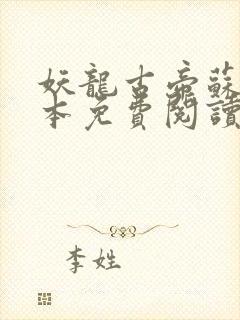 妖龍古帝蘇
本免費閱讀
李姓